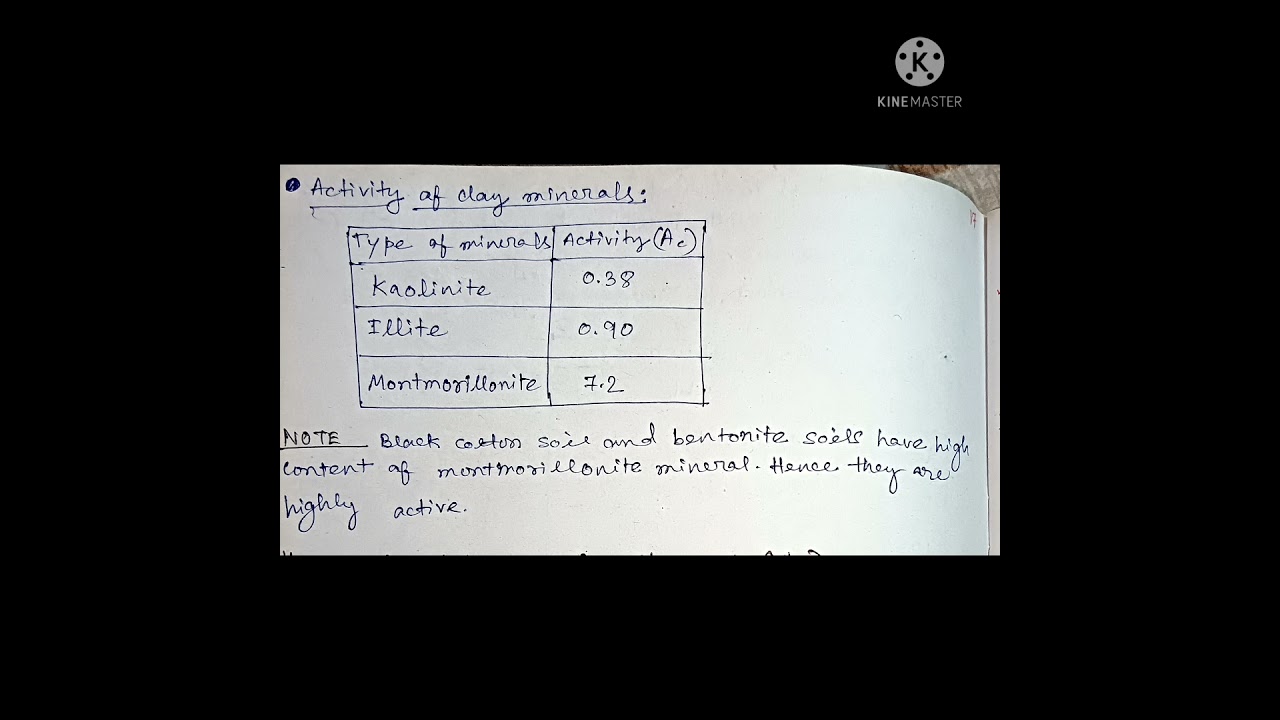 K
KINEMASTER
Activity of clay minerals:
17
Type of minerals Activity (Ac)
Kaolinite 0.38
Illite 0.90
Montmorillonite 7.2
NOTE Black cotton soil and bentonite soils have high
content of montmorillonite mineral. Hence they are
highly active.